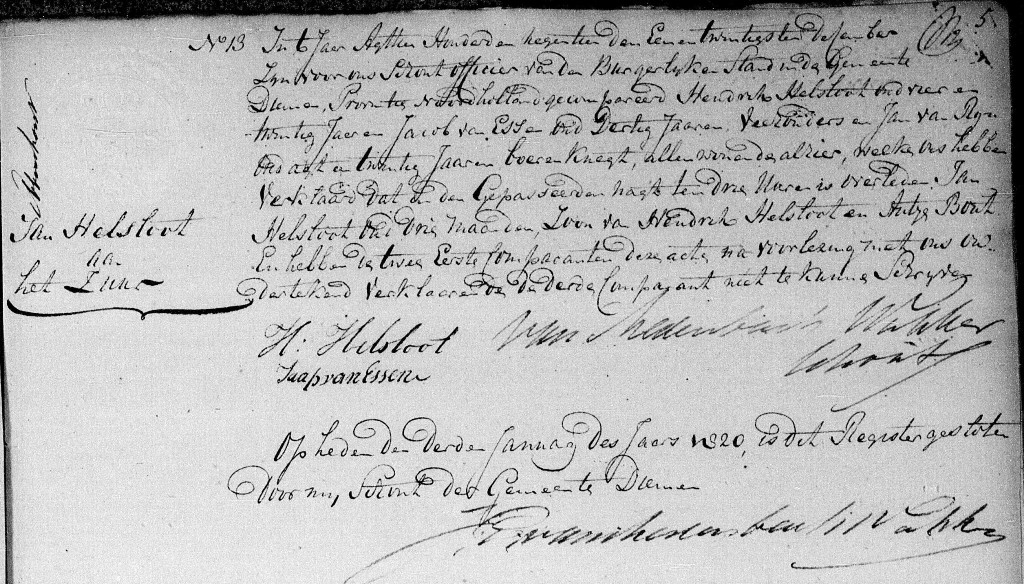 No 13 In t Jaar Agttien Honderd en negentien den Een en twintigsten desember
Zyn voor ons Schout officier van den Burgerlyken Stand in de Gemeente
Diemen, Provintie Noordholland gecompareerd Hendrik Helsloot oud vier en
twintig Jaaren Jacob van Essen oud Dertig Jaaren, Veehouders en Jan van Ryn
oud agt en twintig Jaaren boeren Knegt, allen wonende alhier, welke ons hebben
Verklaard dat in den Gepasseerden nagt ten drie Uuren is overleden Jan
Helsloot oud Drie maanden, Zoon van Hendrik Helsloot en Antje Bont
En hebben de twee Eerste Comparanten deze acte na voorlezing met ons on-
dertekend Verklaarende de derde Comparant niet te kunnen Schryven
Jan Helsloot
aan
het
H: Helsloot
Jaap van Essen
Schout
Op heden den derden Januay des Jaars 1820, is dit Register gesloten
Door my, Schout der Gemeente Diemen